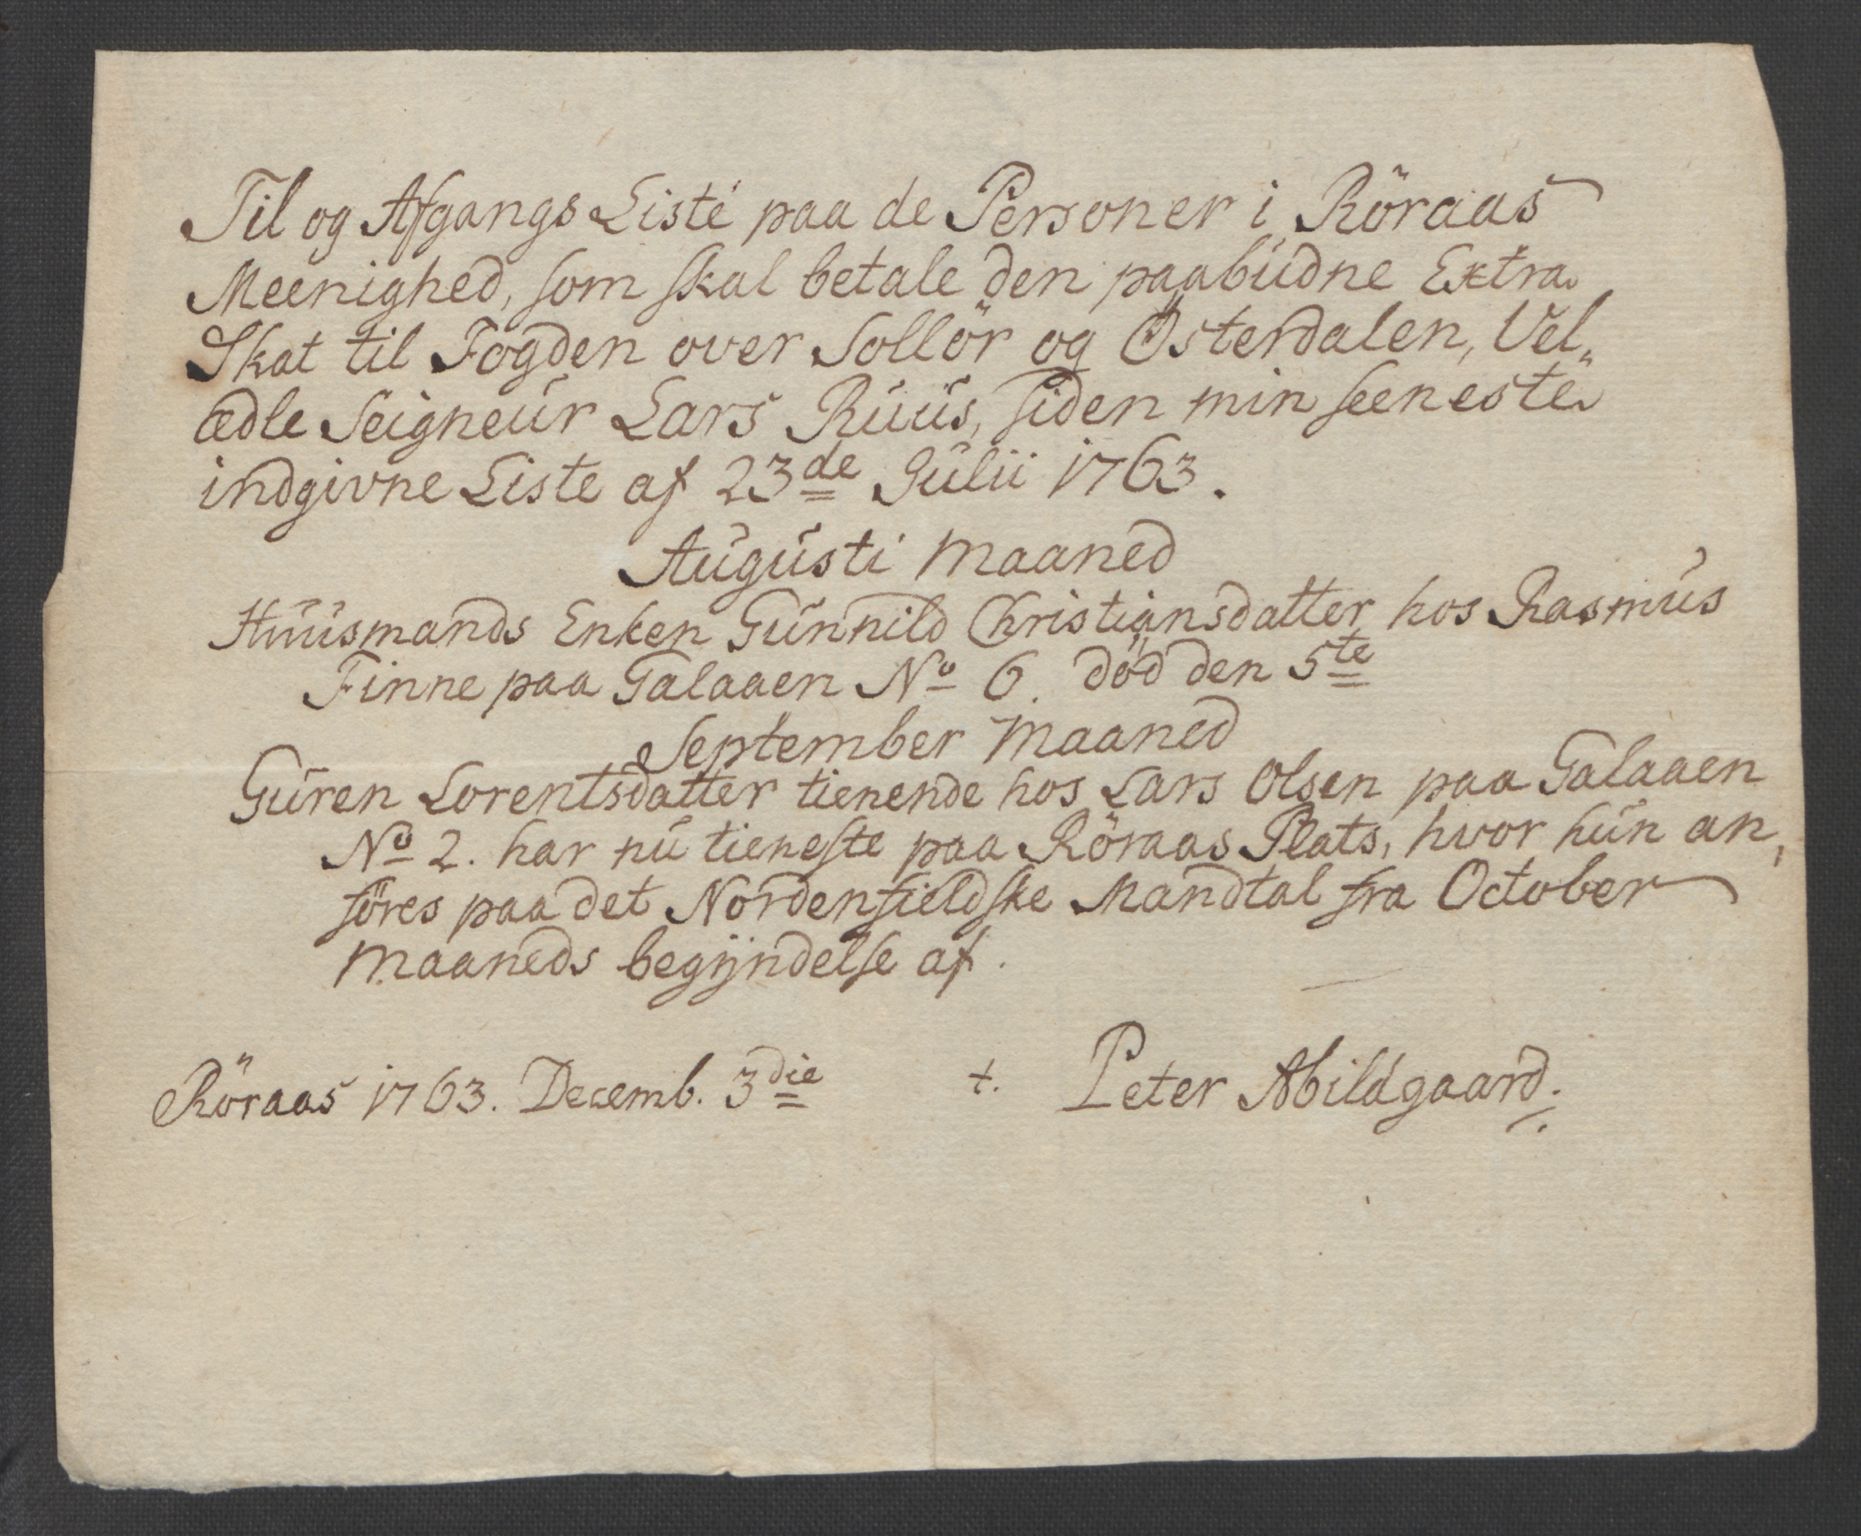 Til og Afgangs Liste paa de Personer i Röraas
Meenighed, som skal betale den paabudne Extra
Skat til Fogden over Sollör og Österdalen, Vel-
ædle Seigneur Lars Ruus, siden min seeneste
indgivne Liste af 23de Julii 1763.
Augusti Maaned
Huusmands Enken Gunnild Christiansdatter hos Rasmus
Finne paa Galaaen No 6. död den 5te
September Maaned
Guren Lorentsdatter tienende hos Lars Olsen paa Galaaen
No 2. har nu tieneste paa Röraas Plats, hvor hun an,
föres paa det Nordenfieldske Mandtal fra October
Maaneds begÿndelse af.
Röraas 1763. Decemb. 3die t. Peter Abildgaard.